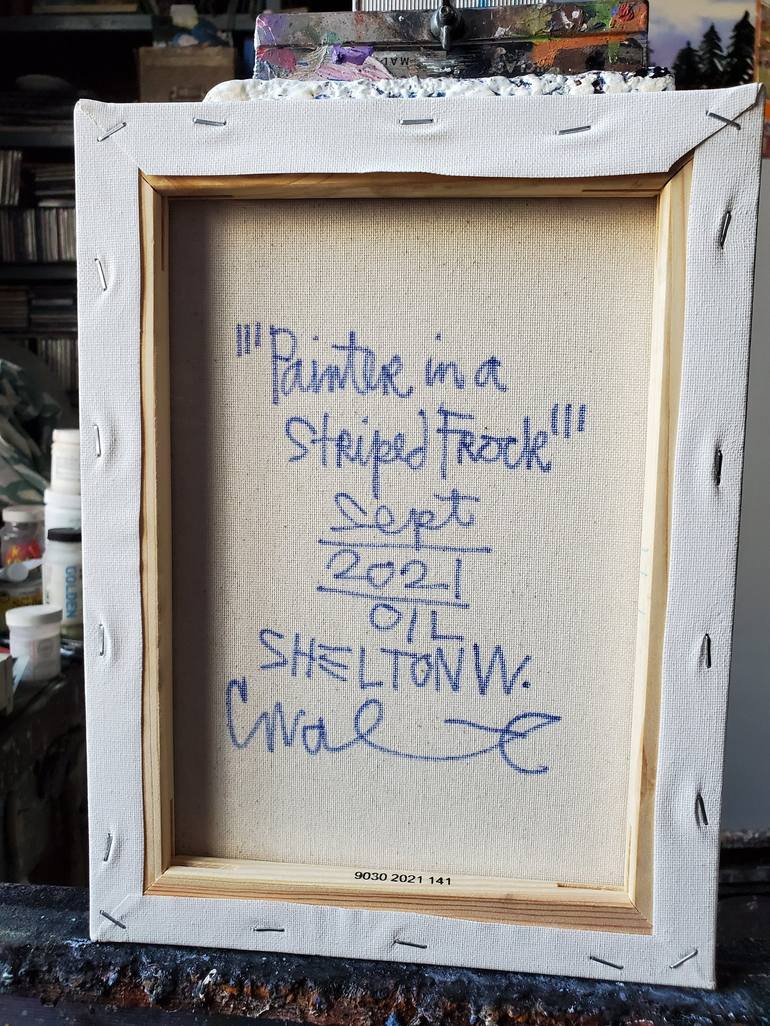 "'Painter in a
Striped Frock'"
Sept
2021
OIL
SHELTON W.
9030 2021 141
GOLDEN